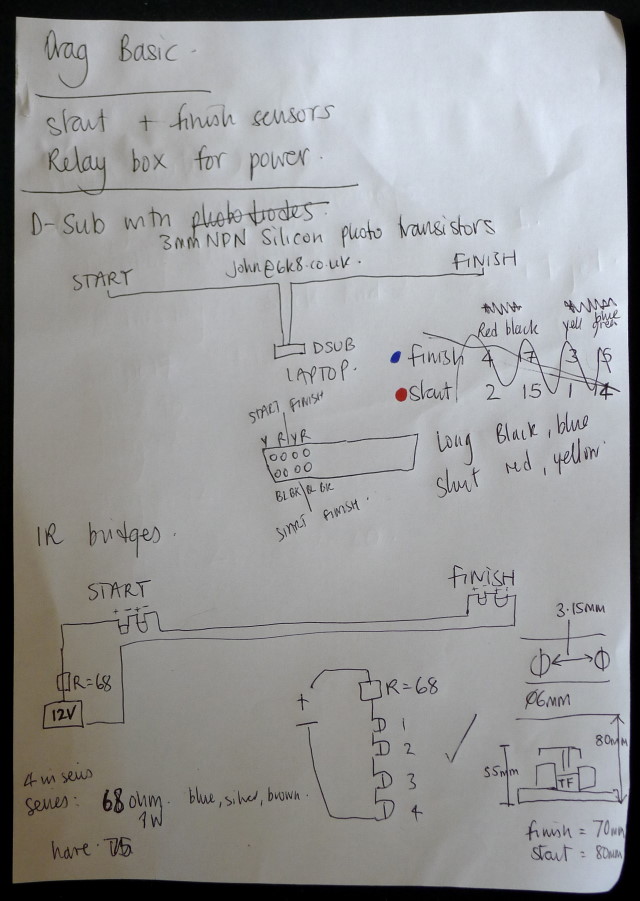 Drag Basic.
start + finish sensors
Relay box for power.
D-Sub with photo diodes.
3mm NPN Silicon photo transistors
john@6k8.co.uk.
START
FINISH
DSUB
LAPTOP.
Red black yell blue
green
finish 4 17 3 16
start 2 15 1 14
START FINISH
Y R Y R
BL BK BL BK
START FINISH.
Long Black, blue
short red, yellow.
IR bridges.
START
FINISH
+ - + -
R=68
12V
+
R=68
1
2
3
4
3.15mm
Ø6mm
80mm
55mm
TF
finish = 70mm
start = 80mm
4 in series
series: 68 ohm. blue, silver, brown.
1W
have